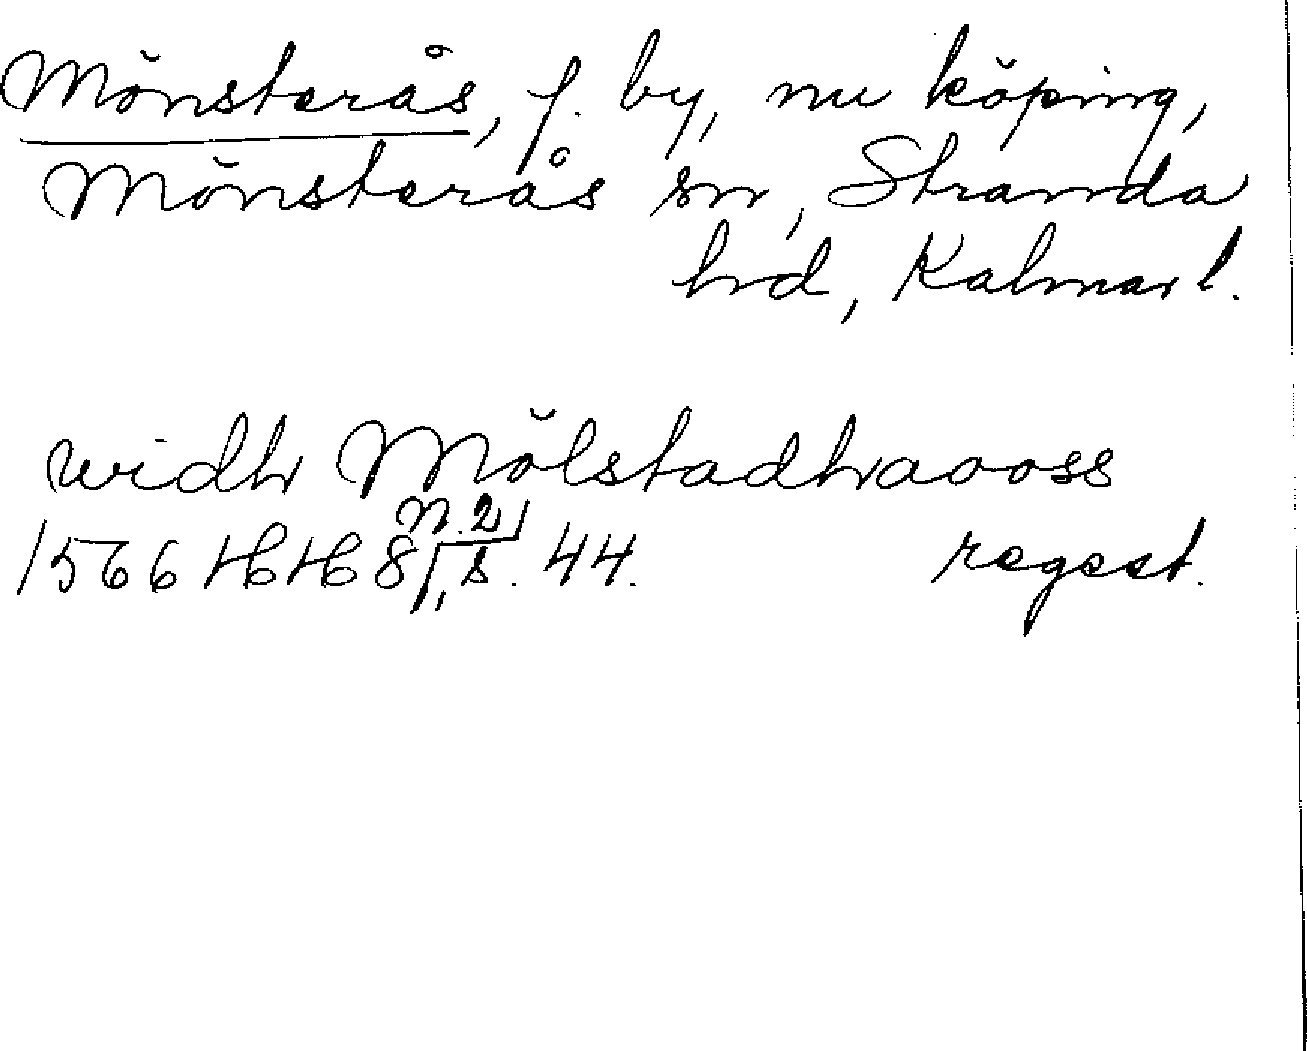 Mönsterås, f. by, nu köping,
Mönsterås sn, Stranda
hd, Kalmar l.
widh Mölstadhaooss
n. 2
1566 HH 8, s. 44. regest.